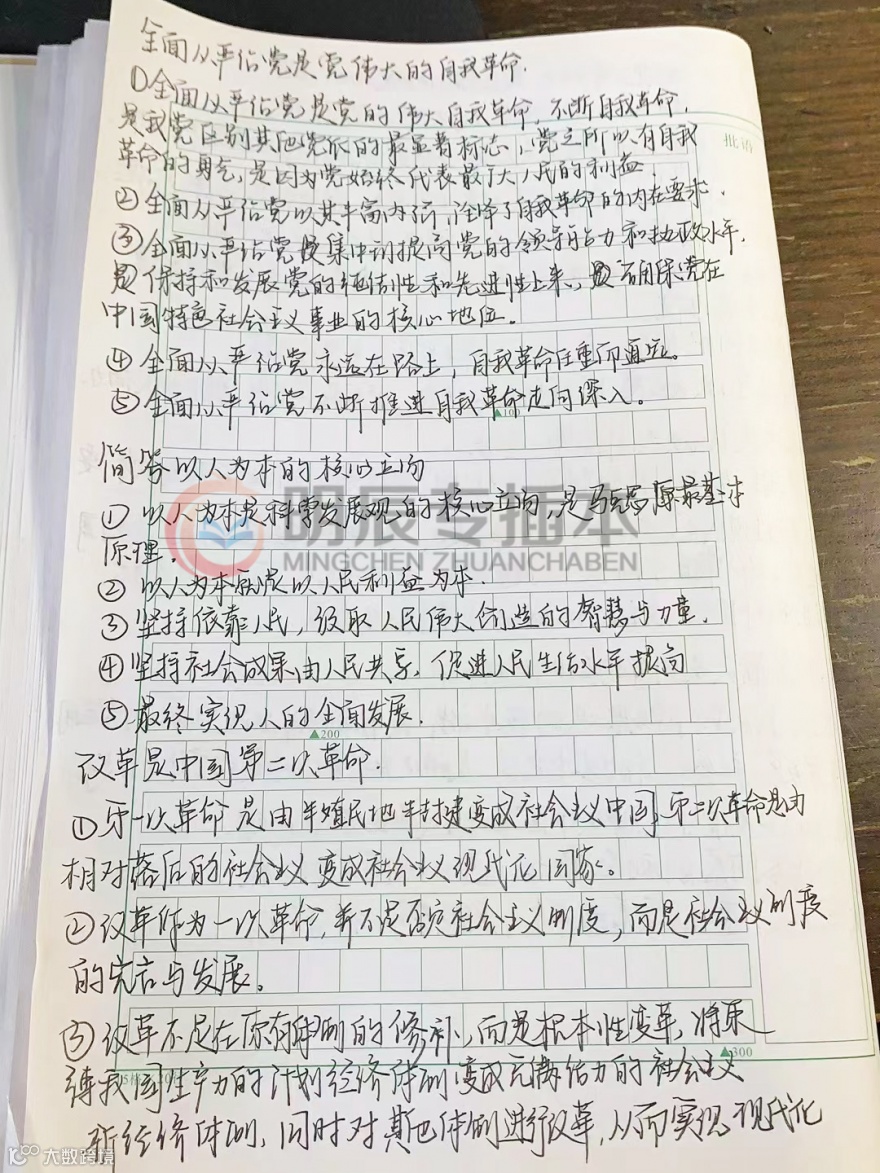 全面从严治党是党伟大的自我革命.
①全面从严治党是党的伟大自我革命,不断自我革命,
是我党区别其他党派的最显著标志,党之所以有自我
革命的勇气,是因为党始终代表最广大人民的利益.
批语
②全面从严治党以其丰富内涵,诠释了自我革命的内在要求.
③全面从严治党集中到提高党的领导能力和执政水平,
是保持和发展党的纯洁性和先进性上来,确保党在
中国特色社会主义事业的核心地位。
④全面从严治党永远在路上,自我革命任重而道远。
⑤全面从严治党不断推进自我革命走向深入。
▲100
简答以人为本的核心立场
①以人为本是科学发展观的核心立场,是马克思原最基本
原理.
明辰专插本
MINGCHEN ZHUANCHABEN
②以人为本就是以人民利益为本.
③坚持依靠人民,汲取人民伟大创造的智慧与力量.
④坚持社会成果由人民共享,促进人民生活水平提高
⑤最终实现人的全面发展.
▲200
改革是中国第二次革命.
①第一次革命是由半殖民地半封建变成社会主义中国,第二次革命是由
相对落后的社会主义变成社会主义现代化国家。
②改革作为一次革命,并不是否定社会主义制度,而是社会主义制度
的完善与发展。
③改革不是在原有体制的修补,而是根本性变革,将束
▲300
缚我国生产力的计划经济体制变成充满活力的社会主义
新经济体制,同时对其他体制进行改革,从而实现现代化
大数跨境